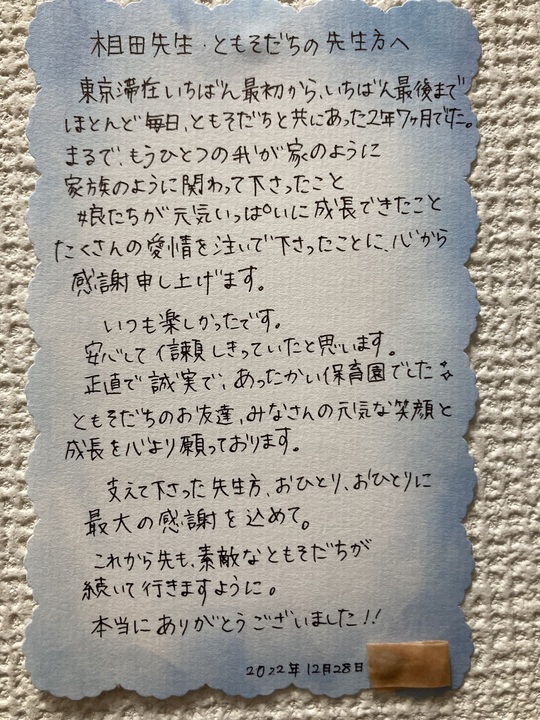 相田先生・ともそだちの先生方へ
東京滞在いちばん最初から、いちばん最後まで
ほとんど毎日、ともそだちと共にあった2年7ヶ月でした。
まるで、もうひとつの我が家のように
家族のように関わって下さったこと
娘たちが元気いっぱいに成長できたこと
たくさんの愛情を注いで下さったことに、心から
感謝申し上げます。
いつも楽しかったです。
安心して信頼しきっていたと思います。
正直で誠実で、あったかい保育園でした
ともそだちのお友達、みなさんの元気な笑顔と
成長を心より願っております。
支えて下さった先生方、おひとり、おひとりに
最大の感謝を込めて。
これから先も、素敵なともそだちが
続いて行きますように。
本当にありがとうございました!!
2022年12月28日